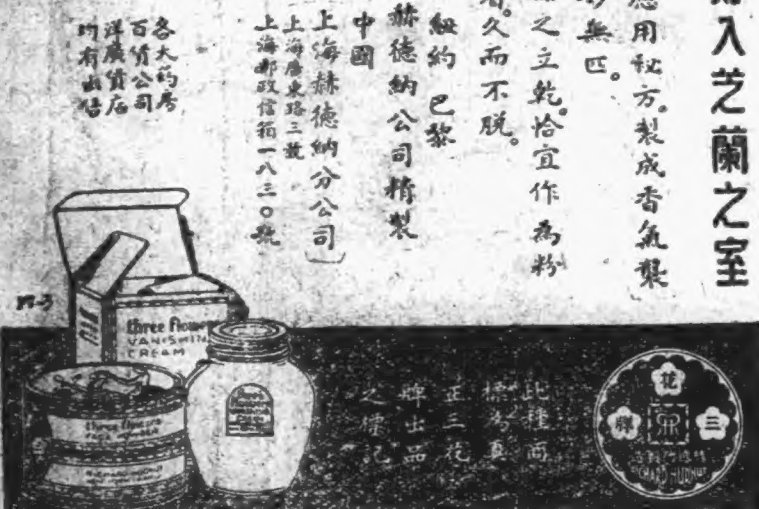 入芝蘭之室
應用秘方。製成香氣襲
無匹。
之立乾。恰宜作為粉
久而不脫。
紐約 巴黎
赫德納公司精製
中國
上海赫德納分公司
上海廣東路三號
上海郵政信箱一八三〇號
各大藥房
百貨公司
洋廣貨店
均有出售
three flowe
VANISHIN
CREAM
three flowers
FACE POWDER
RICHARD HUDNUT
此種商
標為真
正三花
牌出品
之標記
三花牌
RICHARD HUDNUT